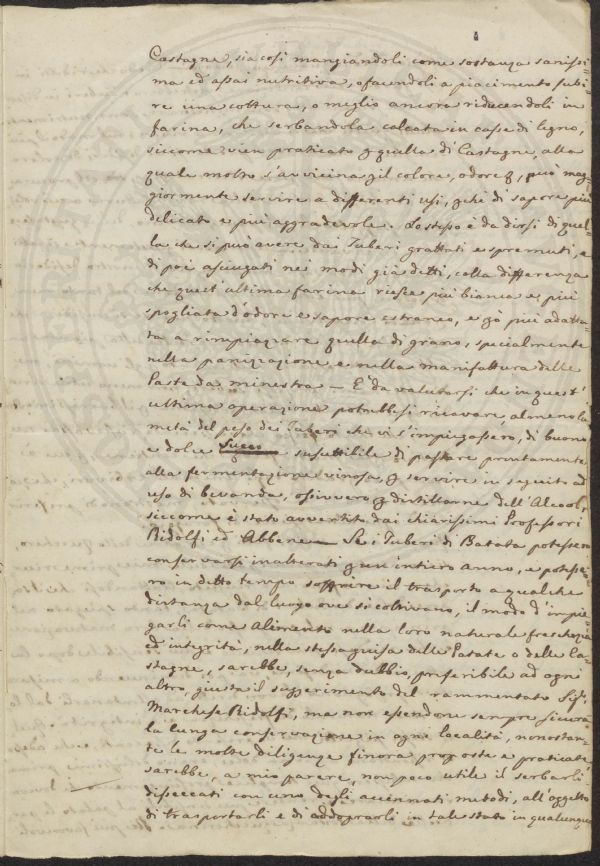 Castagne, sia così mangiandoli come sostanza sanissi-
ma ed assai nutritiva, o facendoli a piacimento subi-
re una cottura, o meglio ancora riducendoli in
farina, che serbandola calcata in casse di legno,
siccome vien praticato p quella di Castagne, alla
quale molto s'avvicina p il colore, odore &, può mag-
giormente servire a differenti usi, p chè di sapore più
delicato e più aggradevole. Lo stesso è da dirsi di quel-
la che si può avere dai Tuberi grattati e spremuti, e
di poi asciugati nei modi già detti, colla differenza
che quest'ultima farina riesce più bianca e più
spogliata d'odore e sapore estraneo, e p ciò più adatta-
ta a rimpiazzare quella di grano, specialmente
nella panizzazione e nella manifattura delle
Paste da minestra — E' da valutarsi che in quest'
ultima operazione potrebbesi ricavare, almeno la
metà del peso dei Tuberi che vi s'impiegassero, di buono
e dolce Succo suscettibile di passare prontamente
alla fermentazione vinosa, p servire in seguito ad
uso di bevanda, ossivvero p distillarne dell'Alcool,
siccome è stato avvertito dai chiarissimi Professori
Ridolfi ed Abbene — Se i Tuberi di Batata potessero
conservarsi inalterati p un intiero anno, e potesse-
ro in detto tempo soffrire il trasporto a qualche
distanza dal luogo ove si coltivano, il modo d'impie-
garli come Alimento nella loro naturale freschezza
ed integrità, nella stessa guisa delle Patate o delle Ca-
stagne, sarebbe, senza dubbio, preferibile ad ogni
altro, giusta il suggerimento del rammentato Sig.r
Marchese Ridolfi, ma non essendone sempre sicura
la lunga conservazione in ogni località, nonostan-
te le molte diligenze finora proposte e praticate
sarebbe, a mio parere, non poco utile il serbarli
disseccati con uno degli accennati metodi, all'oggetto
di trasportarli e di addoprarli in tale stato in qualunque